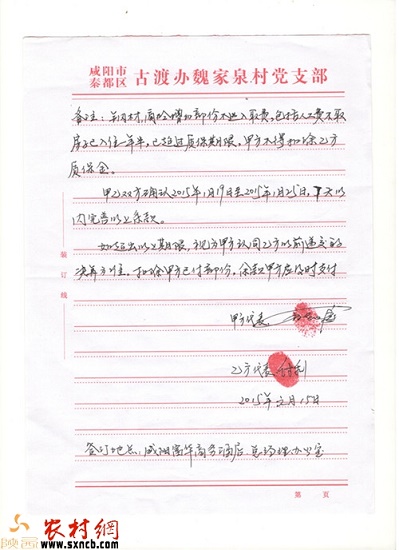 咸阳市
秦都区 古渡办魏家泉村党支部
备注：钢材、商砼增加部份不进入取费，包括人工费不取
房子已入住一年半，已超过质保期限，甲方不得扣除乙方
质保金。
甲乙双方确认2015年1月19日至2015年1月25日，7天以
内完善以上条款。
如超出以上期限，视为甲方认同乙方以前递交的
决算为准。扣除甲方已付部份，余款甲方应及时支付
装订线
甲方代表
乙方代表
2015年2月15日
签订地点：咸阳富华商务酒店 总经理办公室
第 页
陕西
农村網
www.sxncb.com